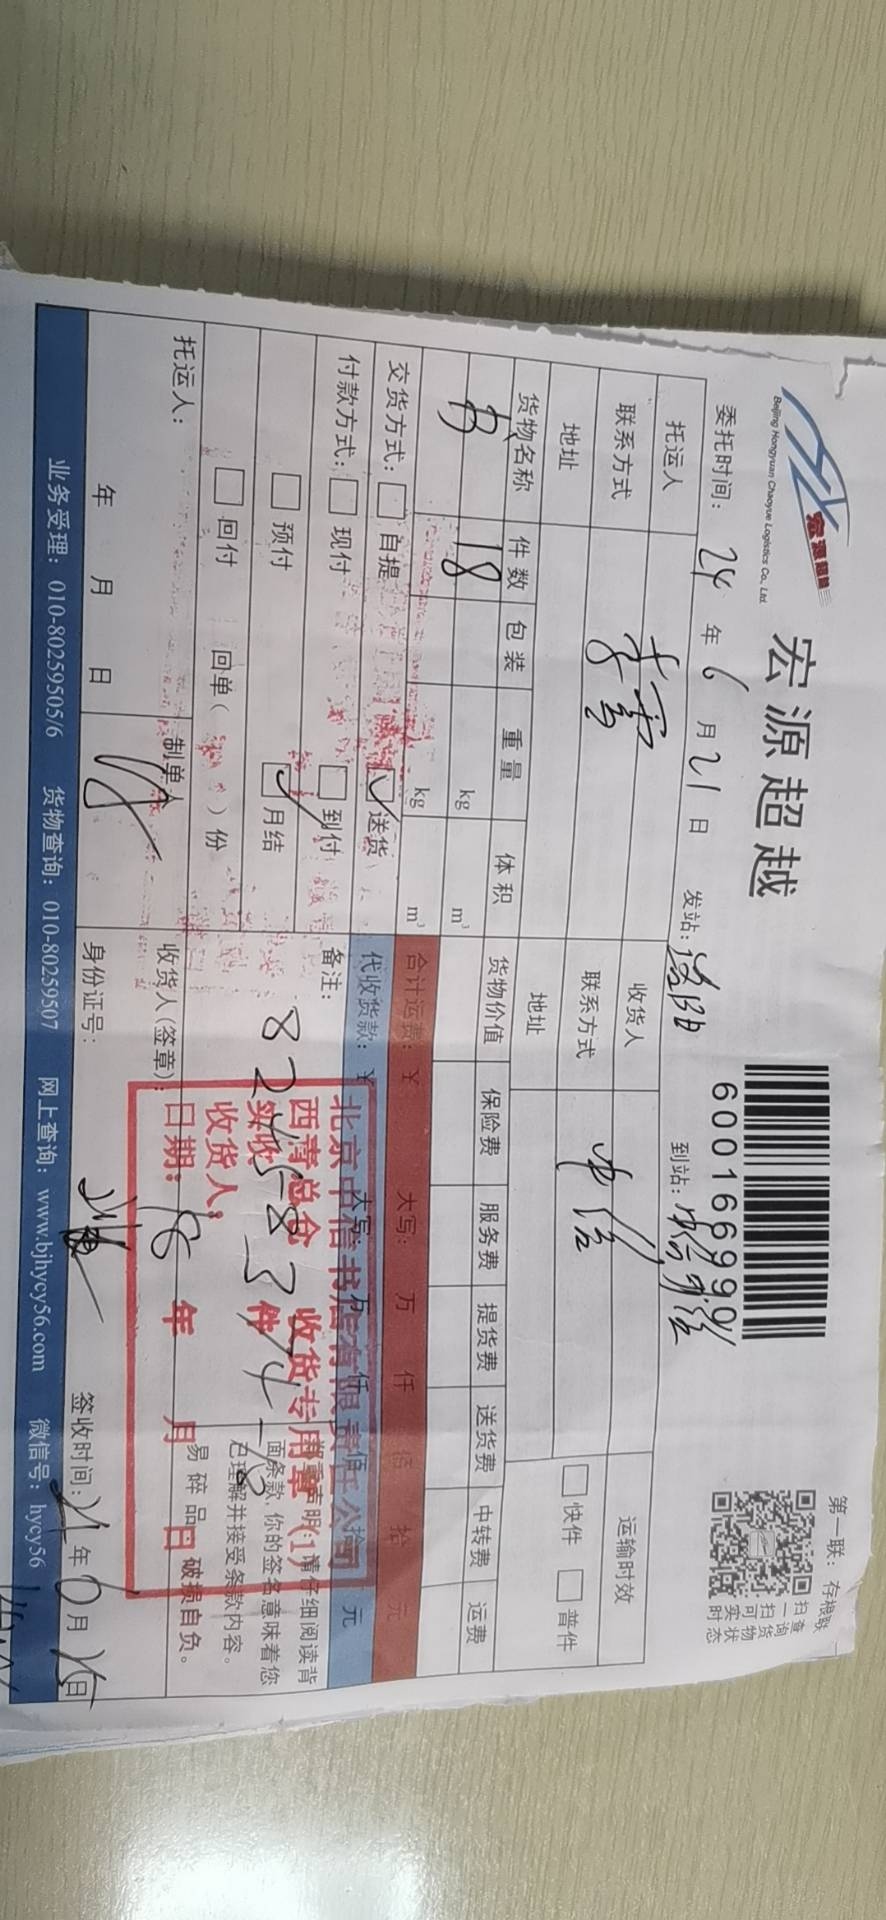 宏源超越
Beijing Hongyuan Chaoyue Logistics Co., Ltd.
宏源超越
60016699901
第一联：存根联
扫一扫
查询货物
可实时状态
委托时间： 24 年 6 月 21 日 发站： 到站：
托运人 收货人 运输时效
联系方式 联系方式 中信 快件 普件
地址 地址
货物名称 件数 包装 重量 体积 货物价值 保险费 服务费 提货费 送货费 中转费 运费
书 18 kg m³
kg m³ 合计运费：￥ 大写： 万 仟 佰 拾 元
交货方式： 自提 送货 代收货款：￥ 大写： 万 仟 佰 拾 元
付款方式： 现付 到付 备注：
预付 月结
回付 回单（ ）份
郑重声明：请仔细阅读背
面条款，你的签名意味着您
已理解并接受条款内容。
易碎品 破损自负。
北京中信书店有限责任公司
西青总仓 收货专用章（1）
实收 件
收货人：
日期： 年 月 日
18
托运人： 制单人 收货人（签章）：
年 月 日 身份证号： 签收时间： 年 6 月 日
业务受理：010-80259505/6 货物查询：010-80259507 网上查询：www.bjhycy56.com 微信号：hycy56